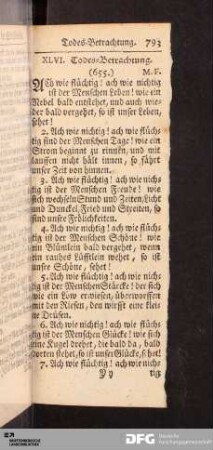 Todes-Betrachtung. 793
XLVI. Todes-Betrachtung.
(655.) M. F.
Ach wie flüchtig! ach wie nichtig
ist der Menschen Leben! wie ein
Nebel bald entstehet, und auch wie-
der bald vergehet, so ist unser Leben,
sehet!
2. Ach wie nichtig! ach wie flüch-
tig sind der Menschen Tage! wie ein
Strom beginnt zu rinnen, und mit
lauffen nicht hält innen, so fährt
unser Zeit von hinnen.
3. Ach wie flüchtig! ach wie nich-
tig ist der Menschen Freude! wie
sich wechseln Stund und Zeiten, Licht
und Dunckel, Fried und Streiten, so
sind unsre Frölichkeiten.
4. Ach wie nichtig! ach wie flüch-
tig ist der Menschen Schöne! wie
ein Blümlein bald vergehet, wenn
ein rauhes Lüfftlein wehet, so ist
unsre Schöne, sehet!
5. Ach wie flüchtig! ach wie nich-
tig ist der Menschen Stärcke! der sich
wie ein Löw erwiesen, überworffen
mit den Riesen, den wirfft eine kleine
Drüsen.
6. Ach wie nichtig! ach wie flüch-
tig ist der Menschen Glücke! wie sich
eine Kugel drehet, die bald da, bald
dorten stehet, so ist unser Glücke, sehet!
7. Ach wie flüchtig! ach wie nich-
Yy tig
DFG Deutsche
Forschungsgemeinschaft